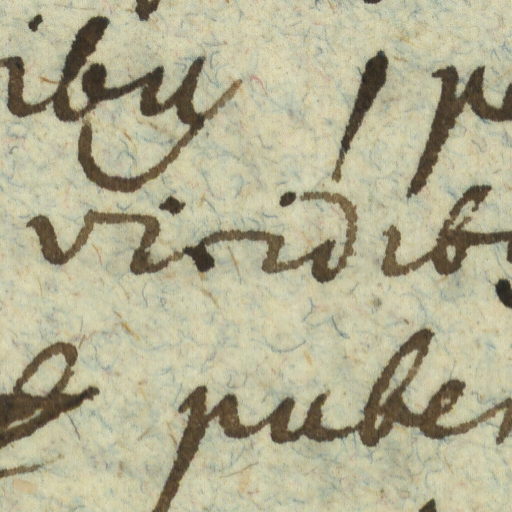 ibus / pe
viridib
& puber